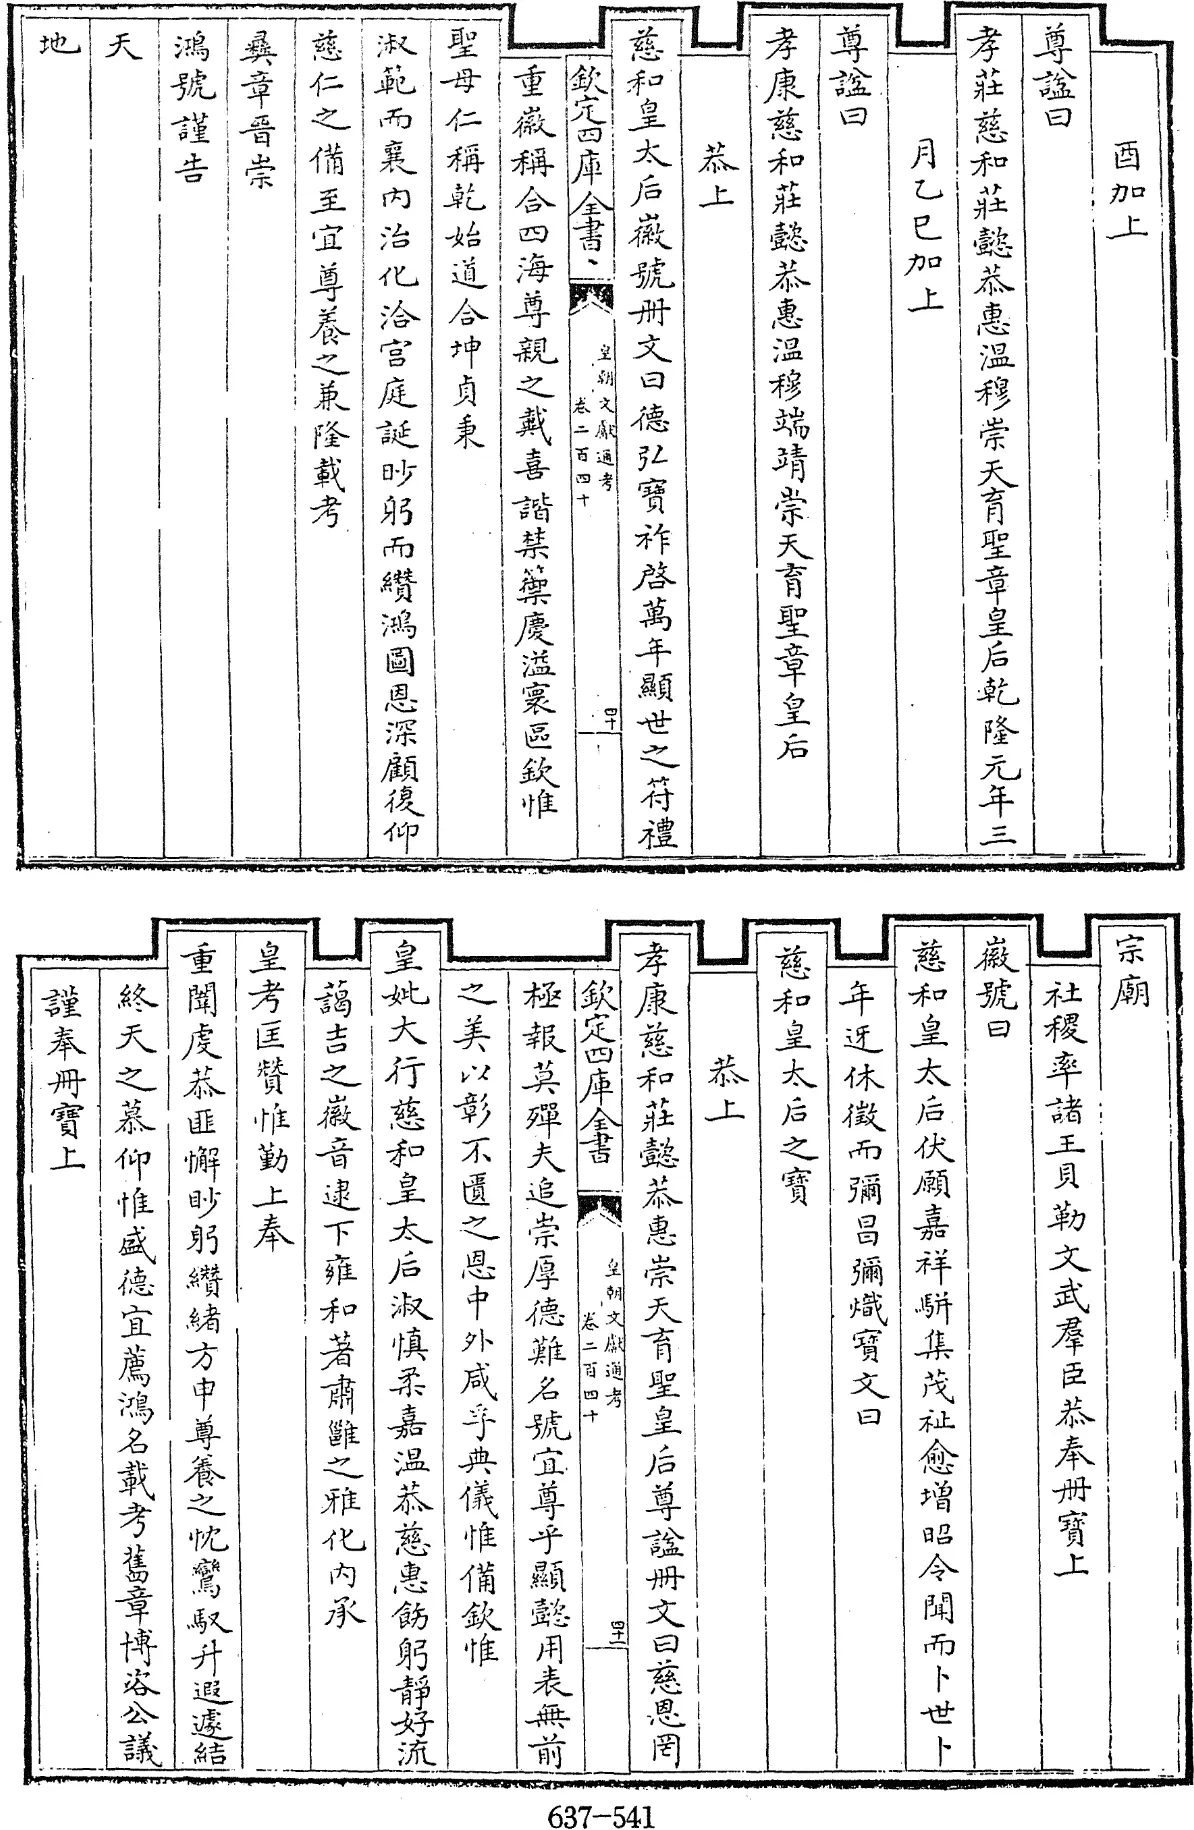 酉加上
尊諡曰
孝莊慈和莊懿恭惠温穆崇天育聖章皇后乾隆元年三
月乙巳加上
尊諡曰
孝康慈和莊懿恭惠温穆端靖崇天育聖章皇后
恭上
慈和皇太后徽號册文曰德弘寶祚啓萬年顯世之符禮
欽定四庫全書
皇朝文獻通考
卷二百四十
四十
重徽稱合四海尊親之戴喜諧禁籞慶溢寰區欽惟
聖母仁稱乾始道合坤貞秉
淑範而襄内治化洽宫庭誕眇躬而纘鴻圖恩深顧復仰
慈仁之備至宜尊養之兼隆載考
彞章晉崇
鴻號謹告
天
地
宗廟
社稷率諸王貝勒文武羣臣恭奉册寶上
徽號曰
慈和皇太后伏願嘉祥駢集茂祉愈增昭令聞而卜世卜
年迓休徵而彌昌彌熾寶文曰
慈和皇太后之寶
恭上
孝康慈和莊懿恭惠崇天育聖皇后尊諡册文曰慈恩罔
欽定四庫全書
皇朝文獻通考
卷二百四十
四十一
極報莫殫夫追崇厚德難名號宜尊乎顯懿用表無前
之美以彰不匱之恩中外咸孚典儀惟備欽惟
皇妣大行慈和皇太后淑慎柔嘉温恭慈惠飭躬靜好流
藹吉之徽音逮下雍和著肅雝之雅化内承
皇考匡贊惟勤上奉
重闈虔恭匪懈眇躬纘緒方申尊養之忱鸞馭升遐遽結
終天之慕仰惟盛德宜薦鴻名載考舊章博咨公議
謹奉册寶上
637-541